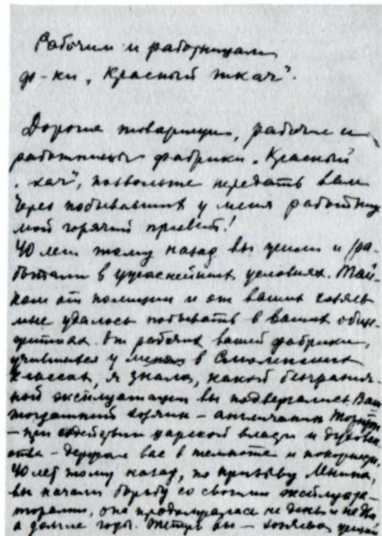 Рабочим и работницам
ф-ки „Красный ткач".
Дорогие товарищи, рабочие и
работницы фабрики „Красный
ткач", позвольте передать вам
через побывавших у меня работниц
мой горячий привет!
40 лет тому назад вы жили и ра-
ботали в ужаснейших условиях. Тай-
ком от полиции и от ваших хозяев
мне удалось побывать в ваших обще-
житиях. От рабочих вашей фабрики,
учившихся у меня в Смоленских
классах, я знала, какой безгранич-
ной эксплуатации вы подвергались. Ваш
тогдашний хозяин - англичанин Торнтон
- при содействии царской власти и духовен-
ства - держал вас в темноте и покорности.
40 лет тому назад, по призыву Ленина,
вы начали борьбу со своими эксплуата-
торами, она продолжалась не день и не два,
а долгие годы. Теперь вы - хозяева